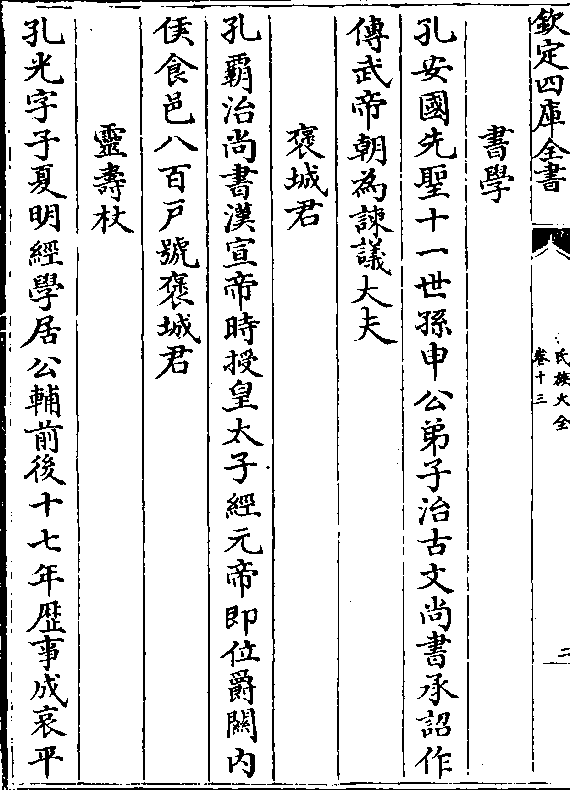 欽定四庫全書
氏族大全
卷十三
二
書學
孔安國先聖十一世孫申公弟子治古文尚書承詔作
傳武帝朝為諫議大夫
褒城君
孔霸治尚書漢宣帝時授皇太子經元帝即位爵關内
侯食邑八百戸號褒城君
靈壽杖
孔光字子夏明經學居公輔前後十七年歴事成哀平